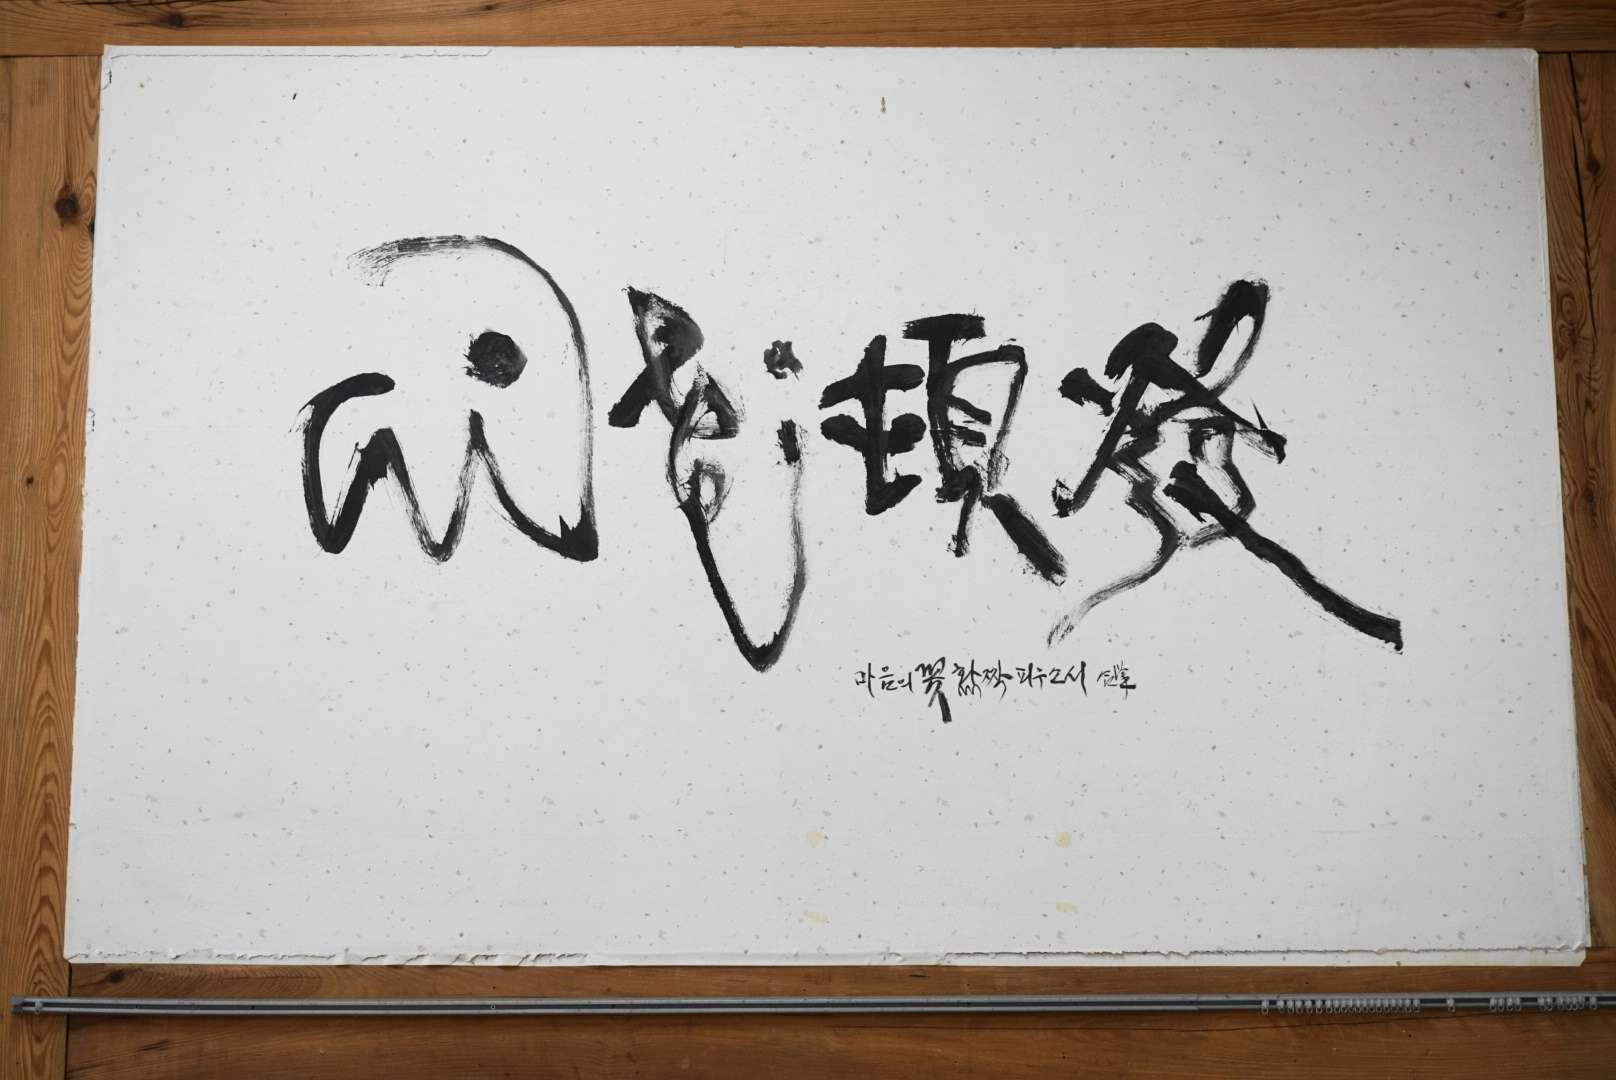 心花頓發
마음의 꽃 활짝 피우소서